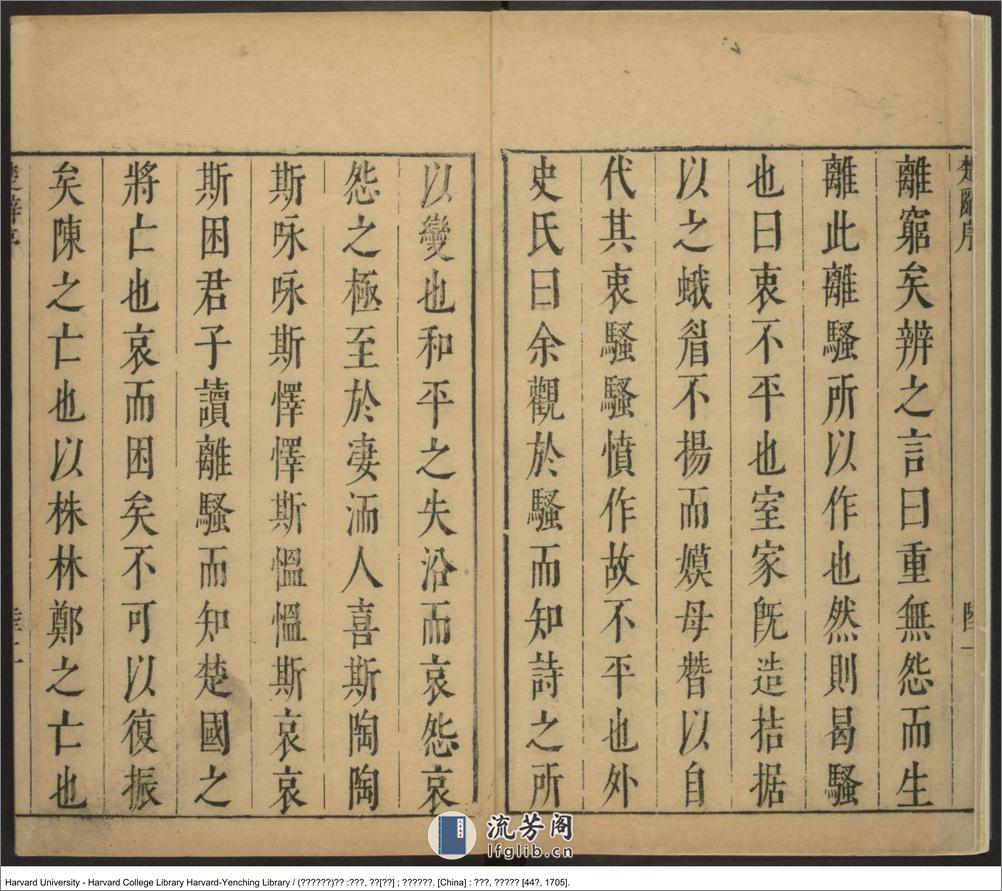 楚辭序
離窮矣辨之言曰重無怨而生
離此離騷所以作也然則曷騷
也曰衷不平也室家旣造拮据
以之蛾眉不揚而嫫母朁以自
代其衷騷騷憤作故不平也外
史氏曰余觀於騷而知詩之所
以變也和平之失沿而哀怨哀
怨之極至於凄洏人喜斯陶陶
斯咏咏斯懌懌斯慍慍斯哀哀
斯困君子讀離騷而知楚國之
將亡也哀而困矣不可以復振
矣陳之亡也以株林鄭之亡也
流芳阁
lfglib.cn
Harvard University - Harvard College Library Harvard-Yenching Library / (??????)?? :???, ??[??] ; ??????. [China] : ???, ????? [44?, 1705].